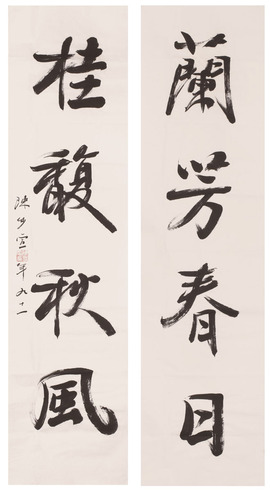 蘭芳春日
桂馥秋風
陳少雲年九十一